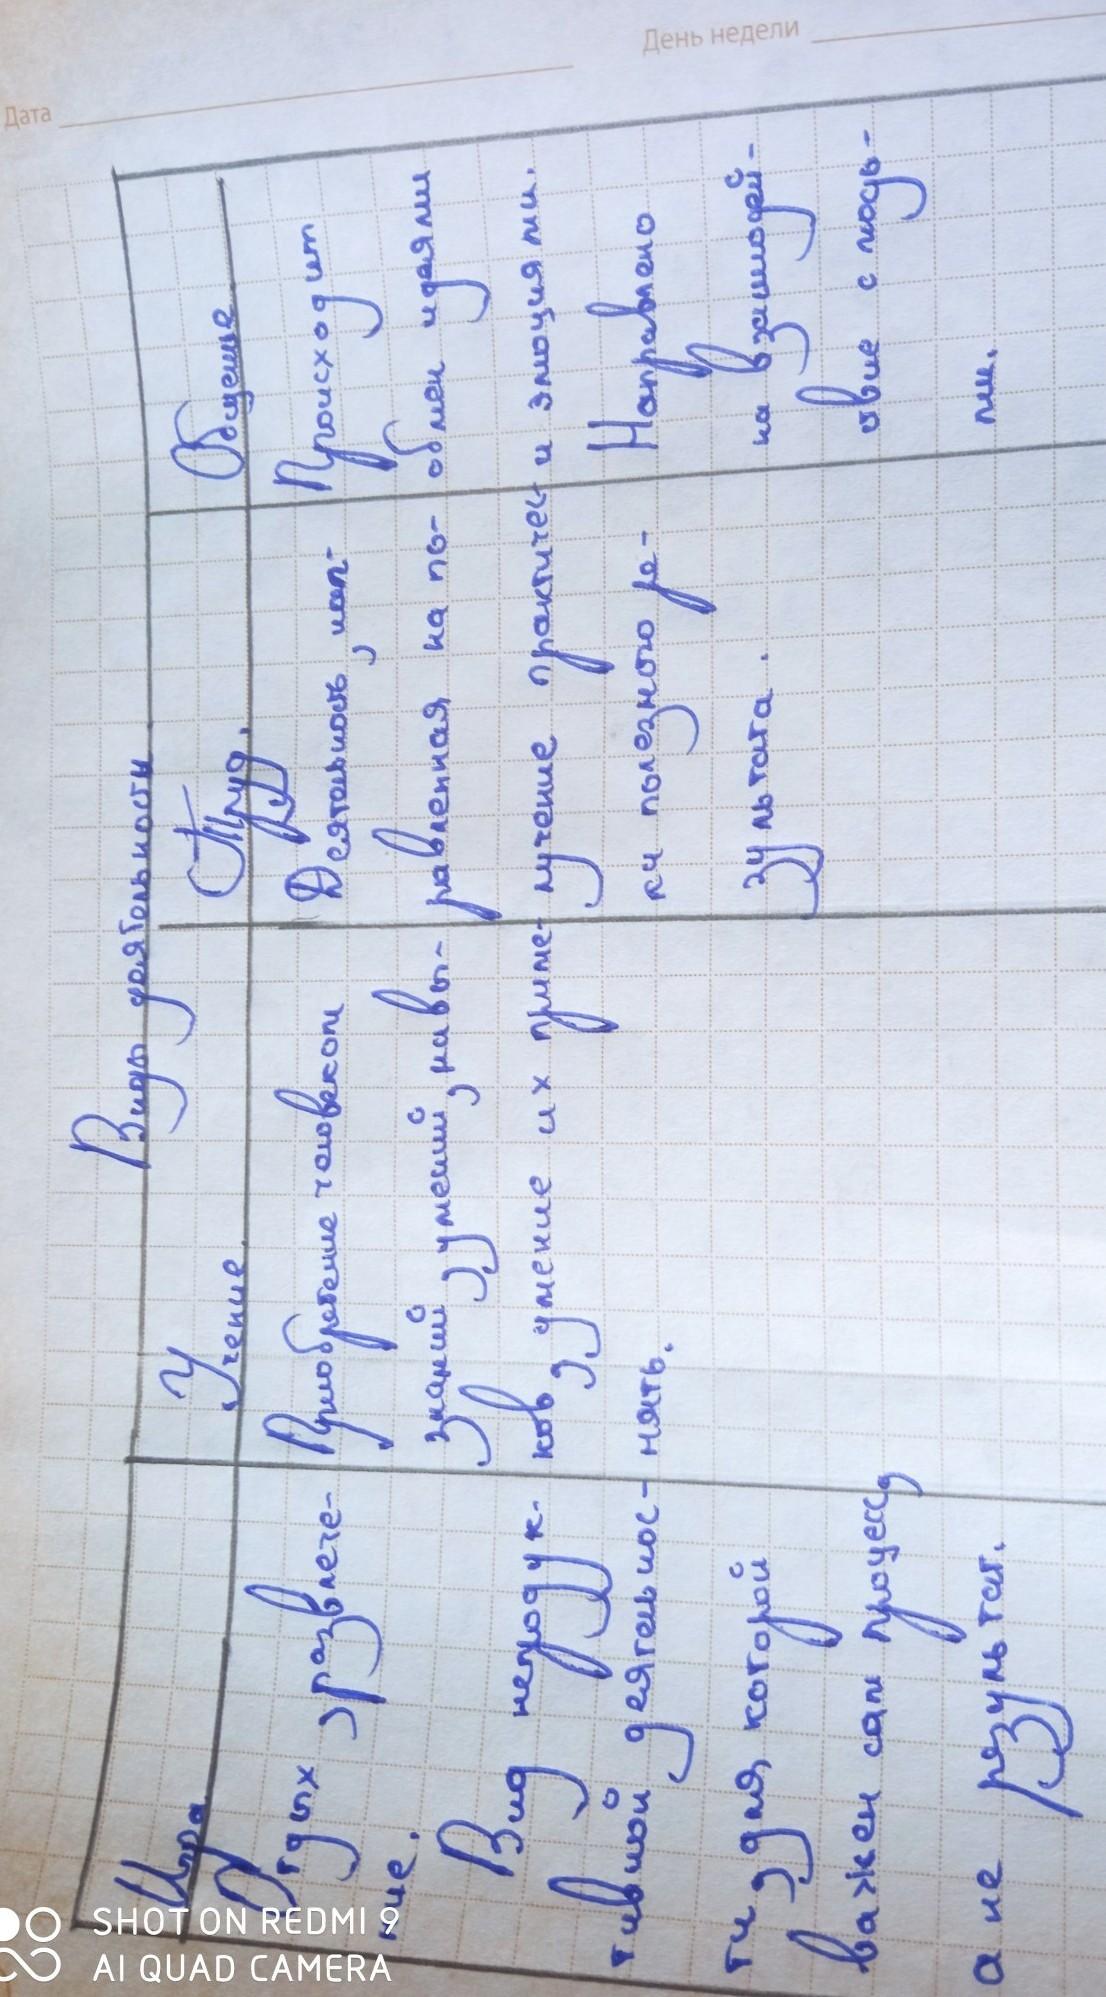 Дата
День недели
Виды деятельности
Игра
Отдых, развлече-
ние.
Вид непродук-
тивной деятельнос-
ти, для которой
важен сам процесс,
а не результат.
Учение
Приобретение человеком
знаний, умений, навы-
ков, умение их приме-
нять.
Труд.
Деятельность, нап-
равленная на по-
лучение практичес-
ки полезного ре-
зультата.
Общение
Происходит
обмен идеями
и эмоциями.
Направлено
на взаимодей-
ствие с людь-
ми.
SHOT ON REDMI 9
AI QUAD CAMERA